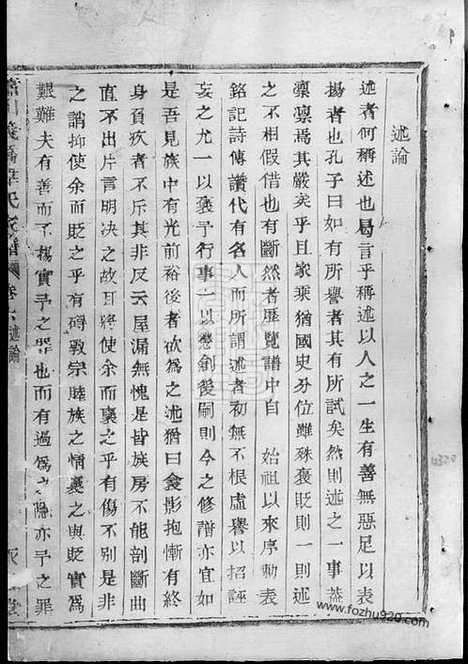 述論
述者何稱述也曷言乎稱述以人之一生有善無惡足以表
揚者也孔子曰如有所譽者其有所試矣然則述之一事蓋
禀禀焉其嚴矣乎且家乘猶國史分位雖殊褒貶則一則述
之不相假借也有斷然者歷覽譜中自 始祖以來序勳表
銘記詩傳讚代有名人而所謂述者初無不根虛譽以招誣
妄之尤一以褒予行事一以懲創後嗣則今之修譜亦宜如
是吾見族中有光前裕後者欲為之述猶曰衾影抱慚有終
身負疚者不斥其非反云屋漏無愧是皆族房不能剖斷曲
直不出片言明決之故耳將使余而褒之乎有傷不別是非
之誚抑使余而貶之乎有碍敦宗睦族之情褒之與貶實為
艱難夫有善而不揚實予之罪也而有過為之隱亦予之罪
蕭山 橋 氏家譜 卷 述論
堂
www.fozhu920.com